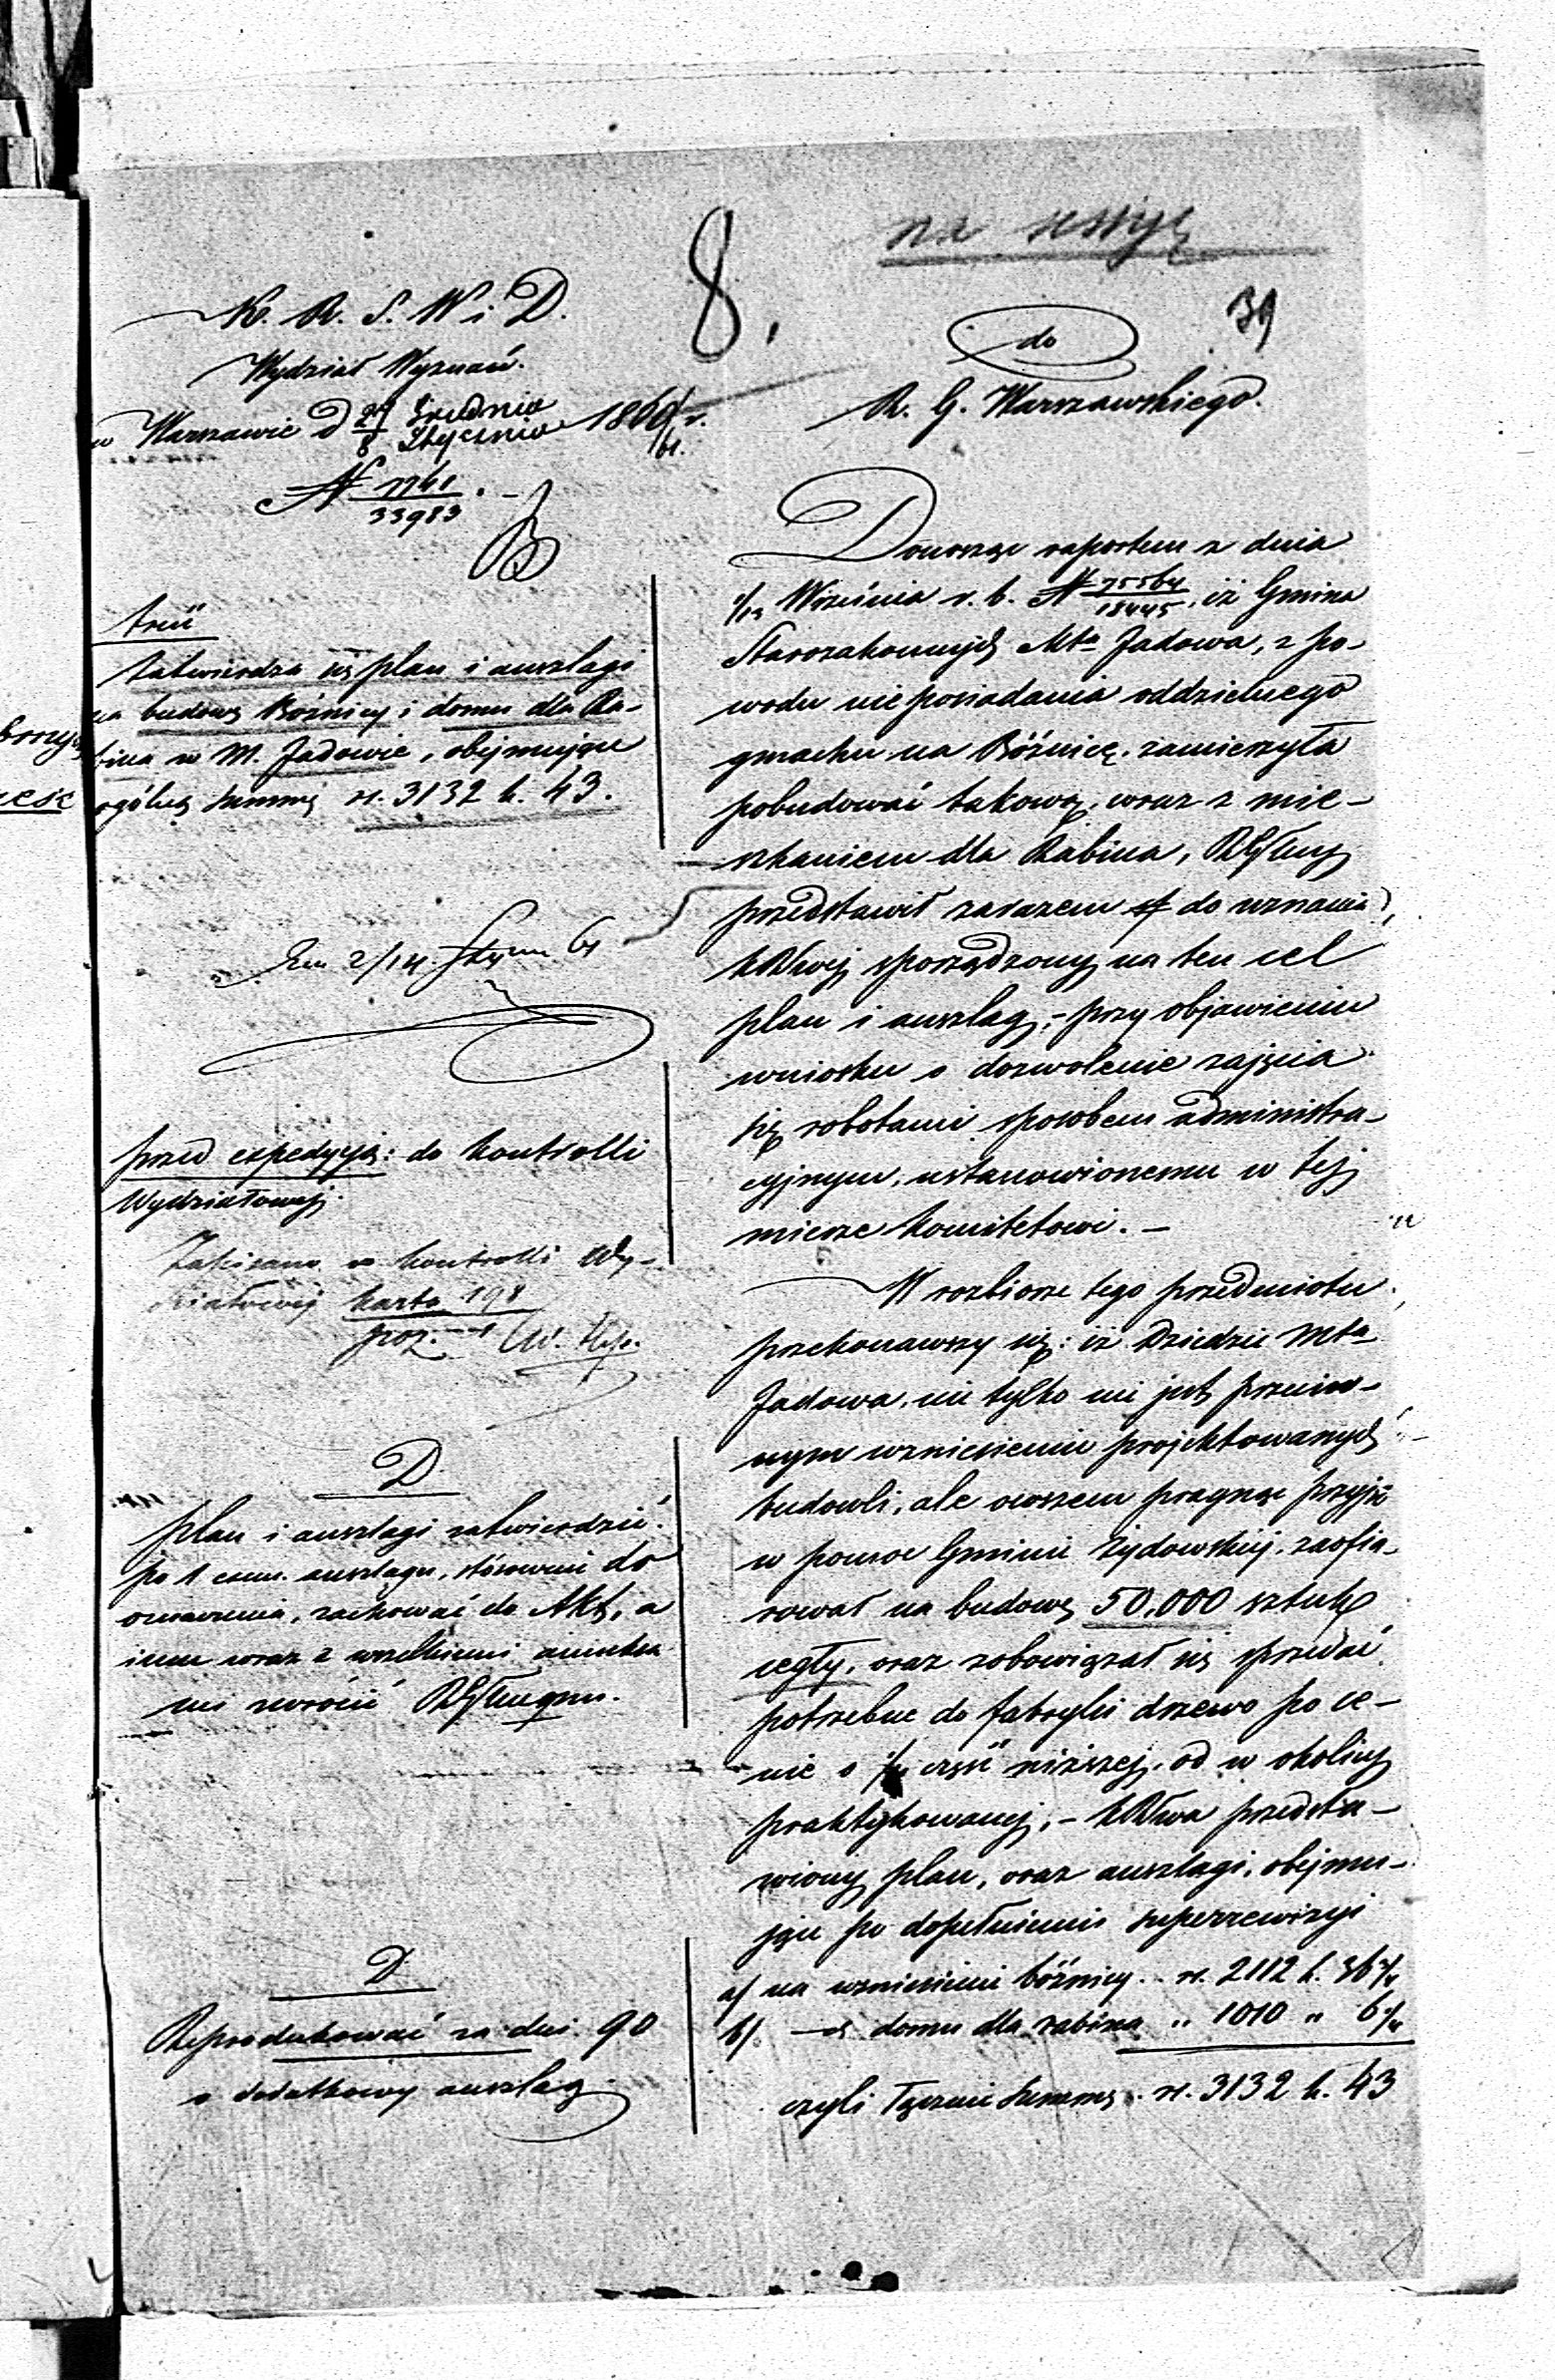 na sessyę
8.
39
K. R. S. W i D.
Wydział Wyznań.
w Warszawie D 27 Grudnia 1860/61 r.
8 Stycznia
N 33983
treść
Zatwierdza się plan i anszlagi
na budowę Bóżnicy i domu dla Ra-
bina w M. Jadowie, obejmujące
ogólną summę rs. 3132 k. 43.
2/14 Stycz 61
przed expedycyą: do kontrolli
Wydziałowej.
Zapisano w kontrolli Wy-
działowej karta 198
poz.
D
plan i anszlagi zatwierdzić.
po 1 exem. anszlagu, stósownie do
oznaczenia, zachować do Akt, a
inne wraz z wszelkiemi annexa
mi zwrócić RGſłmu
D
Reprodukować za dni 90
o dodatkowy anszlag
do
R. G. Warszawskiego.
Donosząc raportem z dnia
1/13 Września r. b. N 75564/18445, iż Gmina
Starozakonnych Mta Jadowa, z po-
wodu nieposiadania oddzielnego
gmachu na Bóżnicę, zamierzyła
pobudować takową, wraz z mie-
szkaniem dla Rabina, RGſłny
przedstawił zarazem do uznania
KRſwej sporządzony na ten cel
plan i anszlag, - przy objawieniu
wniosku o dozwolenie zajęcia
się robotami sposobem administra-
cyjnym, ustanowionemu w tej
mierze Komitetowi. -
W rozbiorze tego przedmiotu
przekonawszy się: iż Dziedzic Mta
Jadowa, nie tylko nie jest przeciw-
nym wzniesieniu projektowanych
budowli, ale owszem pragnąc przyjść
w pomoc Gminie Żydowskiej, zaofia-
rował na budowę 50.000 sztuk
cegły, oraz zobowiązał się sprzedać
potrzebne do fabryki drzewo po ce-
nie o części niższej, od w okolicy
praktykowanej, - KRſwa przedsta-
wiony plan, oraz anszlagi, obejmu-
jące po dopełnieniu superrewizyi
a/ na wzniesienie bóżnicy .. rs. 2112 k. 36
b/ — domu dla rabina " 1010 " 6
czyli łącznie Summę . rs. 3132 k. 43